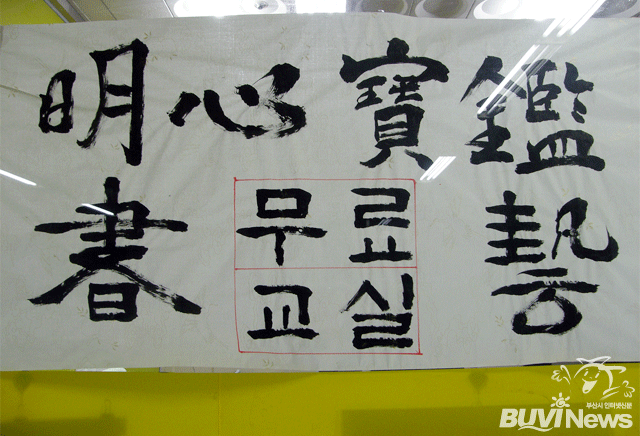 明心寶鑑
書 무료 藝
교실
부산시 인터넷신문
BUVINews